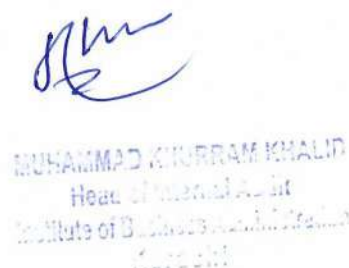 MUHAMMAD KHURRAM KHALID
Head of Internal Audit
Institute of Business Administration
Karachi